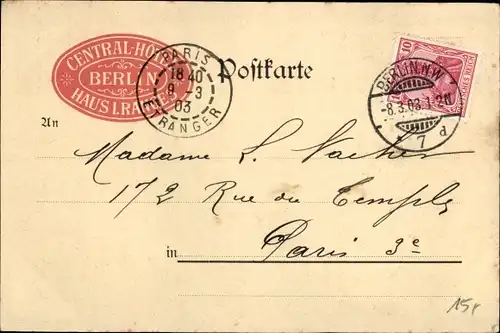 CENTRAL-HO
BERLIN
HAUS I. RA
PARIS
18 40
9 - 3
03
ETRANGER
Postkarte
10
BERLIN N.W.
-8.3.03.1-2N
7 d
An
Madame L.
172 Rue du Temple
in Paris 3e
15r